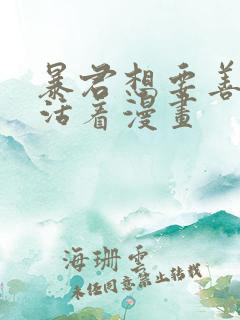 暴君想要善
活着漫畫
海珊雲
未经同意禁止转载